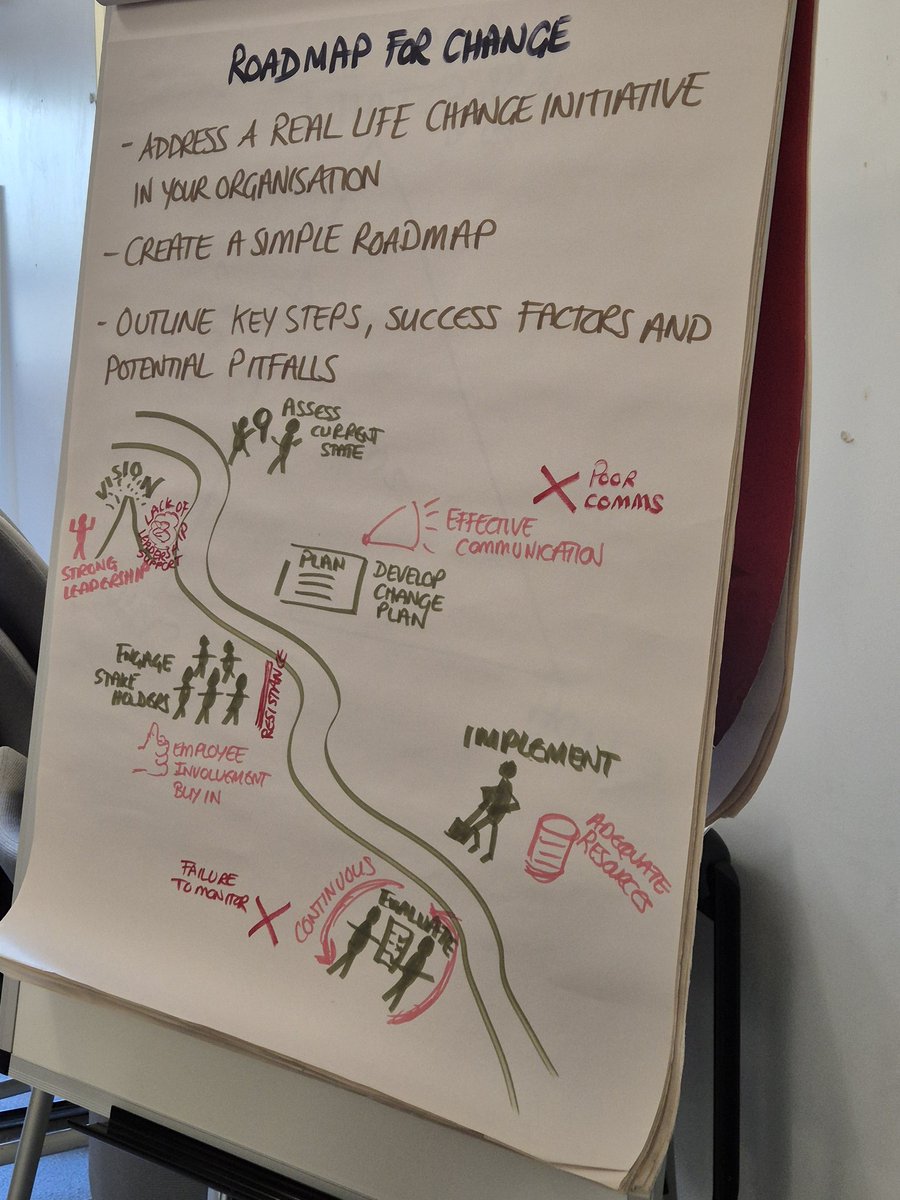 ROADMAP FOR CHANGE
- ADDRESS A REAL LIFE CHANGE INITIATIVE
IN YOUR ORGANISATION
- CREATE A SIMPLE ROADMAP
- OUTLINE KEY STEPS, SUCCESS FACTORS AND
POTENTIAL PITFALLS
ASSESS
CURRENT
STATE
VISION
LACK OF
LEADERSHIP
SUPPORT
STRONG
LEADERSHIP
X POOR
COMMS
EFFECTIVE
COMMUNICATION
PLAN
DEVELOP
CHANGE
PLAN
ENGAGE
STAKE
HOLDERS
RESISTANCE
EMPLOYEE
INVOLVEMENT
BUY IN
IMPLEMENT
ADEQUATE
RESOURCES
FAILURE
TO MONITOR X
CONTINUOUS
EVALUATE